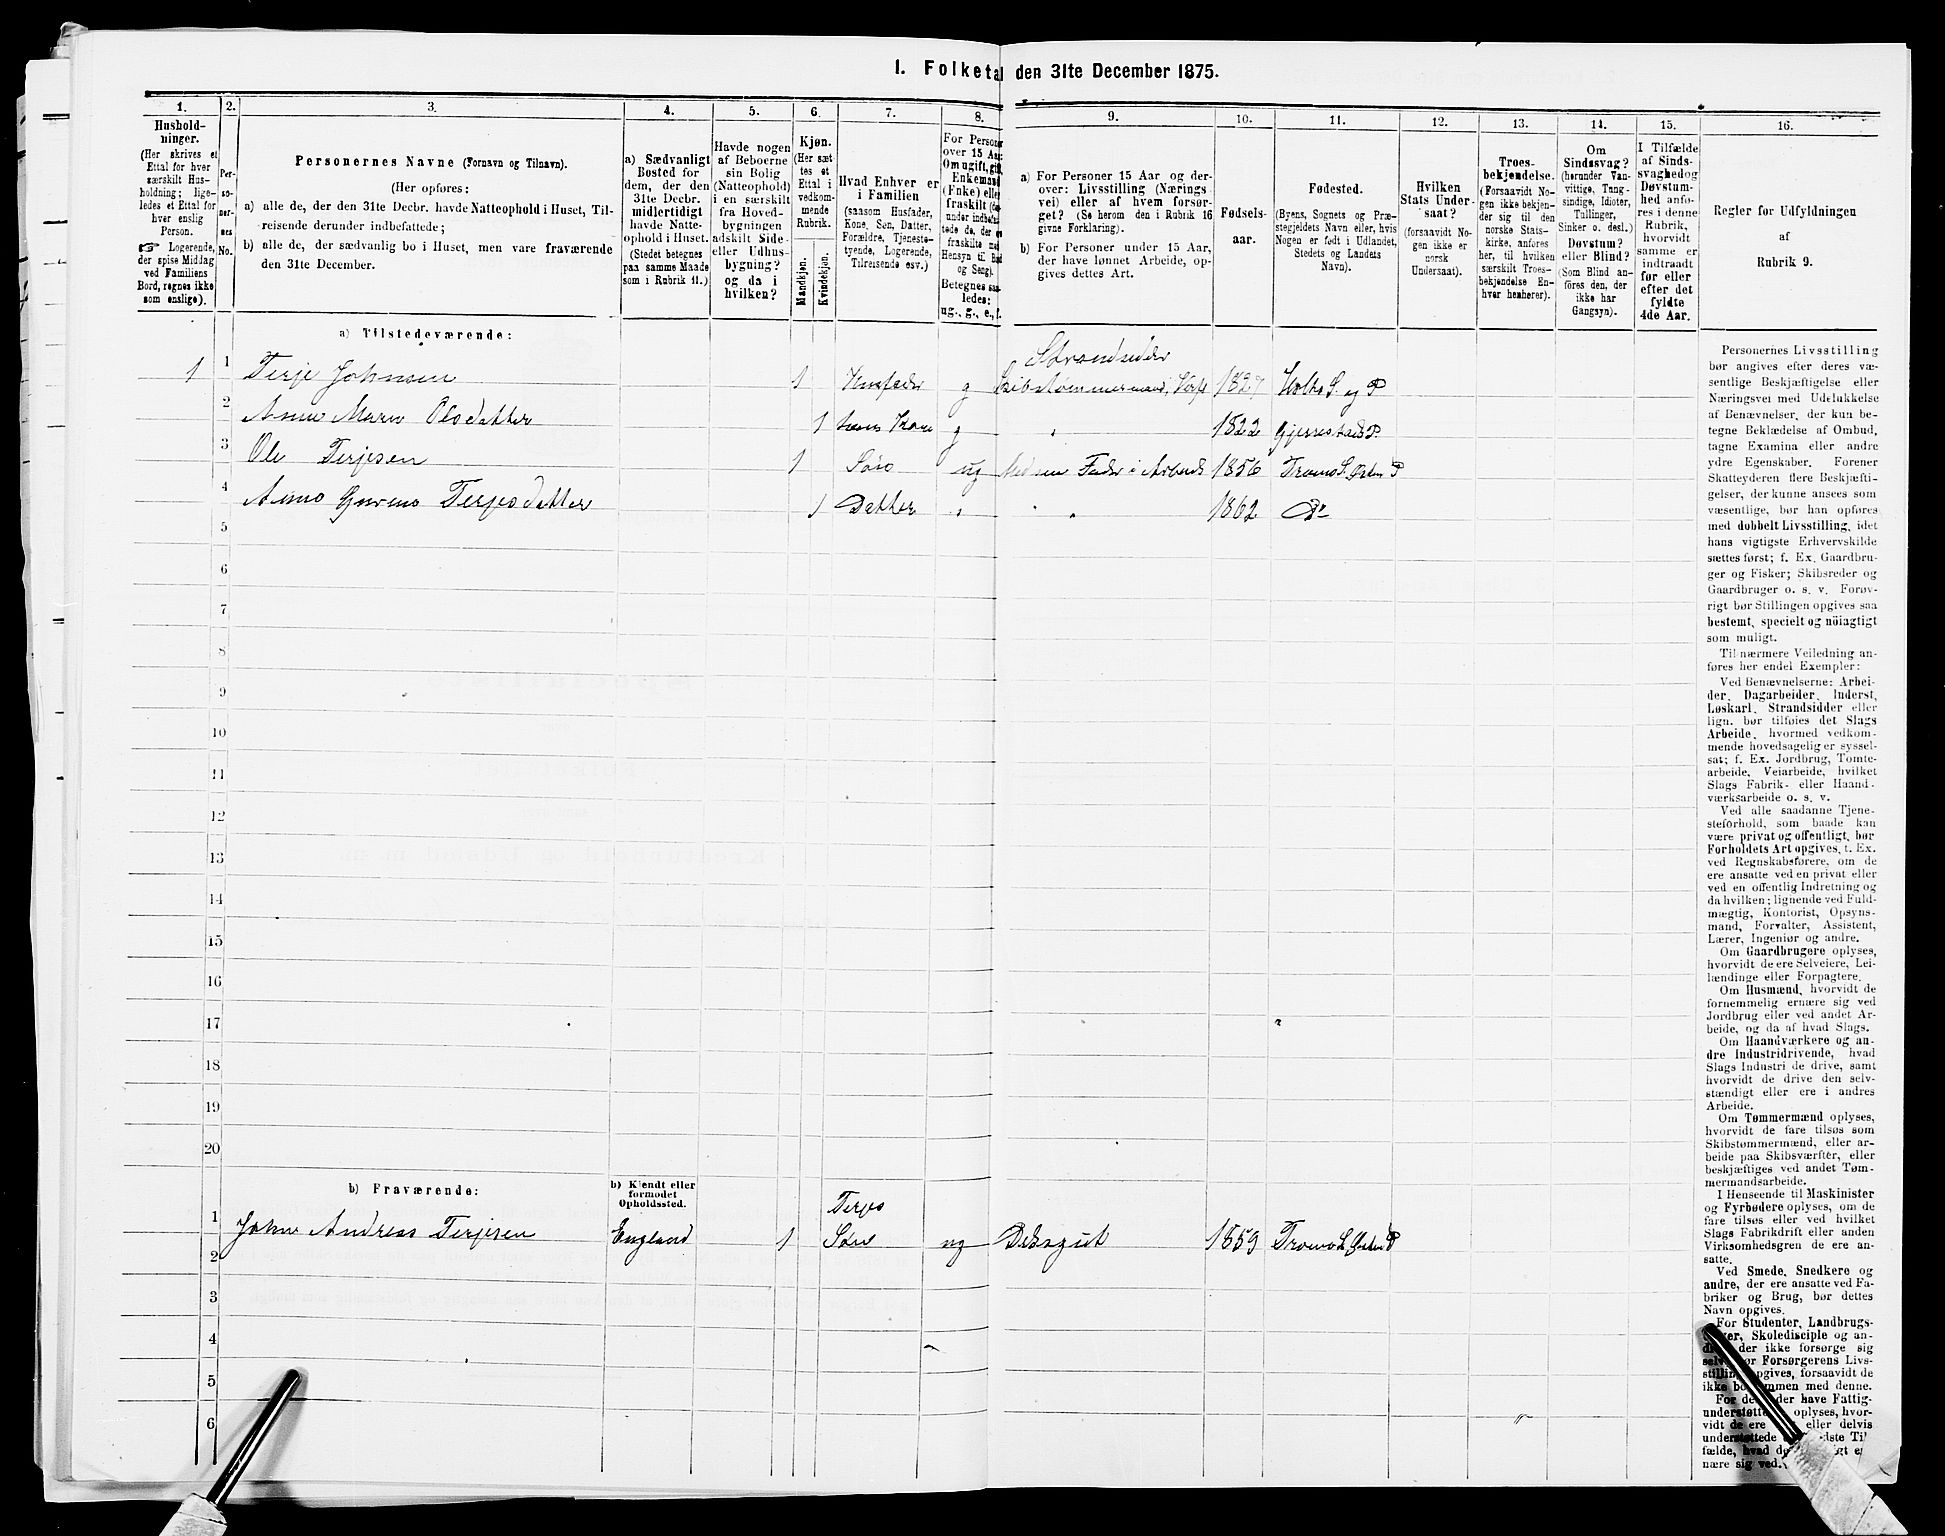 1. Folketal den 31te December 1875.
1.
2.
3.
4.
5.
6.
7.
8.
9.
10.
11.
12.
13.
14.
15.
16.
Hushold-
ninger.
(Her skrives et
Ettal for hver
særskilt Hus-
holdning; lige-
ledes et Ettal for
hver enslig
Person.
☞ Logerende,
der spise Middag
ved Familiens
Bord, regnes ikke
som enslige).
Per-
so-
ner-
nes
No.
Personernes Navne (Fornavn og Tilnavn).
(Her opføres:
a) alle de, der den 31te Decbr. havde Natteophold i Huset, Til-
reisende derunder indbefattede;
b) alle de, der sædvanlig bo i Huset, men vare fraværende
den 31te December.
a) Sædvanligt
Bosted for
dem, der den
31te Decbr.
midlertidigt
havde Natte-
ophold i Huset.
(Stedet betegnes
paa samme Maade
som i Rubrik 11.)
Havde nogen
af Beboerne
sin Bolig
(Natteophold)
i en særskilt
fra Hoved-
bygningen
adskilt Side-
eller Udhus-
bygning?
og da i
hvilken?
Kjøn.
(Her sæt-
tes et
Ettal i
vedkom-
mende
Rubrik.
Mandkjøn.
Kvindekjøn.
Hvad Enhver er
i Familien
(saasom Husfader,
Kone, Søn, Datter,
Forældre, Tjeneste-
tyende, Logerende,
Tilreisende osv.)
For Personer
over 15 Aar:
Om ugift, gift,
Enkemand
(Enke) eller
fraskilt (der-
under indbefat-
tede de, der ere
fraskilte med
Hensyn til Bord
og Seng).
Betegnes saa-
ledes:
ug., g., e., f.
a) For Personer 15 Aar og der-
over: Livsstilling (Nærings
vei) eller af hvem forsør-
get? (Se herom den i Rubrik 16
givne Forklaring).
b) For Personer under 15 Aar,
der have lønnet Arbeide, op-
gives dettes Art.
Fødsels-
aar.
Fødested.
(Byens, Sognets og Præ-
stegjeldets Navn eller, hvis
Nogen er født i Udlandet,
Stedets og Landets
Navn).
Hvilken
Stats Under-
saat?
(forsaavidt No-
gen ikke er
norsk
Undersaat).
Troes-
bekjendelse.
(Forsaavidt No-
gen ikke bekjen-
der sig til den
norske Stats-
kirke, anføres
her, til hvilken
særskilt Troes-
bekjendelse En-
hver henhører).
Om
Sindssvag?
(herunder Van-
vittige, Tung-
sindige, Idioter,
Tullinger,
Sinker o. desl.)
Døvstum?
eller Blind?
(Som Blind an-
føres den, der
ikke har
Gangsyn).
I Tilfælde
af Sinds-
svaghed og
Døvstum-
hed anfø-
res i denne
Rubrik,
hvorvidt
samme er
indtraadt
før eller
efter det
fyldte
4de Aar.
Regler for Udfyldningen
af
Rubrik 9.
a) Tilstedeværende:
Strandsidder
1 1 Terje Johnsen 1 Husfader g Skibstømmermand, 1827 Holts S. og P
2 Anne Marie Olsdatter 1 hans Kone g " 1822 Gjerrestads P.
3 Ole Terjesen 1 Søn ug Fader i Arbeide 1856 Tromø S. Østm P
4 Terjesdatter 1 Datter " " " 1862 Do
5
6
7
8
9
10
11
12
13
14
15
16
17
18
19
20
b) Fraværende:
b) Kjendt eller
formodet
Opholdssted.
Terjes
1 John Andreas Terjesen England 1 Søn ug Deksgut 1859 Tromø S. P
2
3
4
5
6
Personernes Livsstilling
bør angives efter deres væ-
sentlige Beskjæftigelse eller
Næringsvei med Udelukkelse
af Benævnelser, der kun be-
tegne Beklædelse af Ombud,
tagne Examina eller andre
ydre Egenskaber. Forener
Skatteyderen flere Beskjæfti-
gelser, der kunne ansees som
væsentlige, bør han opføres
med dobbelt Livsstilling, idet
hans vigtigste Erhvervskilde
sættes først; f. Ex. Gaardbru-
ger og Fisker; Skibsreder og
Gaardbruger o. s. v. Forøv-
rigt bør Stillingen opgives saa
bestemt, specielt og nöiagtigt
som muligt.
Til nærmere Veiledning an-
føres her endel Exempler:
Ved Benævnelserne: Arbei-
der, Dagarbeider, Inderst,
Løskarl, Strandsidder eller
lign. bør tilføies det Slags
Arbeide, hvormed vedkom-
mende hovedsagelig er syssel-
sat; f. Ex. Jordbrug, Tomte-
arbeide, Veiarbeide, hvilket
Slags Fabrik- eller Haand-
værksarbeide o. s. v.
Ved alle saadanne Tjene-
steforhold, som baade kan
være privat og offentligt, bør
Forholdets Art opgives, t. Ex.
ved Regnskabsførere, om de
ere ansatte ved en privat eller
ved en offentlig Indretning og
da hvilken; lignende ved Fuld-
mægtig, Kontorist, Opsyns-
mand, Forvalter, Assistent,
Lærer, Ingeniør og andre.
Om Gaardbrugere oplyses,
hvorvidt de ere Selveiere, Lei-
lændinge eller Forpagtere.
Om Husmænd, hvorvidt de
fornemmelig ernære sig ved
Jordbrug eller ved andet Ar-
beide, og da af hvad Slags.
Om Haandværkere og an-
dre Industridrivende, hvad
Slags Industri de drive, samt
hvorvidt de drive den selv-
stændigt eller ere i andres
Arbeide.
Om Tømmermænd oplyses,
hvorvidt de fare tilsøs som
Skibstømmermænd, eller ar-
beide paa Skibsværfter, eller
beskjæftiges ved andet Tøm-
mermandsarbeide.
I Henseende til Maskinister
og Fyrbødere oplyses, om de
fare tilsøs eller ved hvilket
Slags Fabrikdrift eller anden
Virksomhed de ere an-
satte.
Ved Smede, Snedkere og
andre, der ere ansatte ved Fa-
briker og Brug, bør dettes
Navn opgives.
For Studenter, Landbrugs-
Skoledisciple og an-
der ikke forsørge sig
Forsørgerens Livs-
opgives, forsaavidt de
ikke bo sammen med denne.
For de, der have Fattig-
oplyses, hvor-
vidt de ere eller delvis
understøttede
fælde, hvad
nære sig ved.